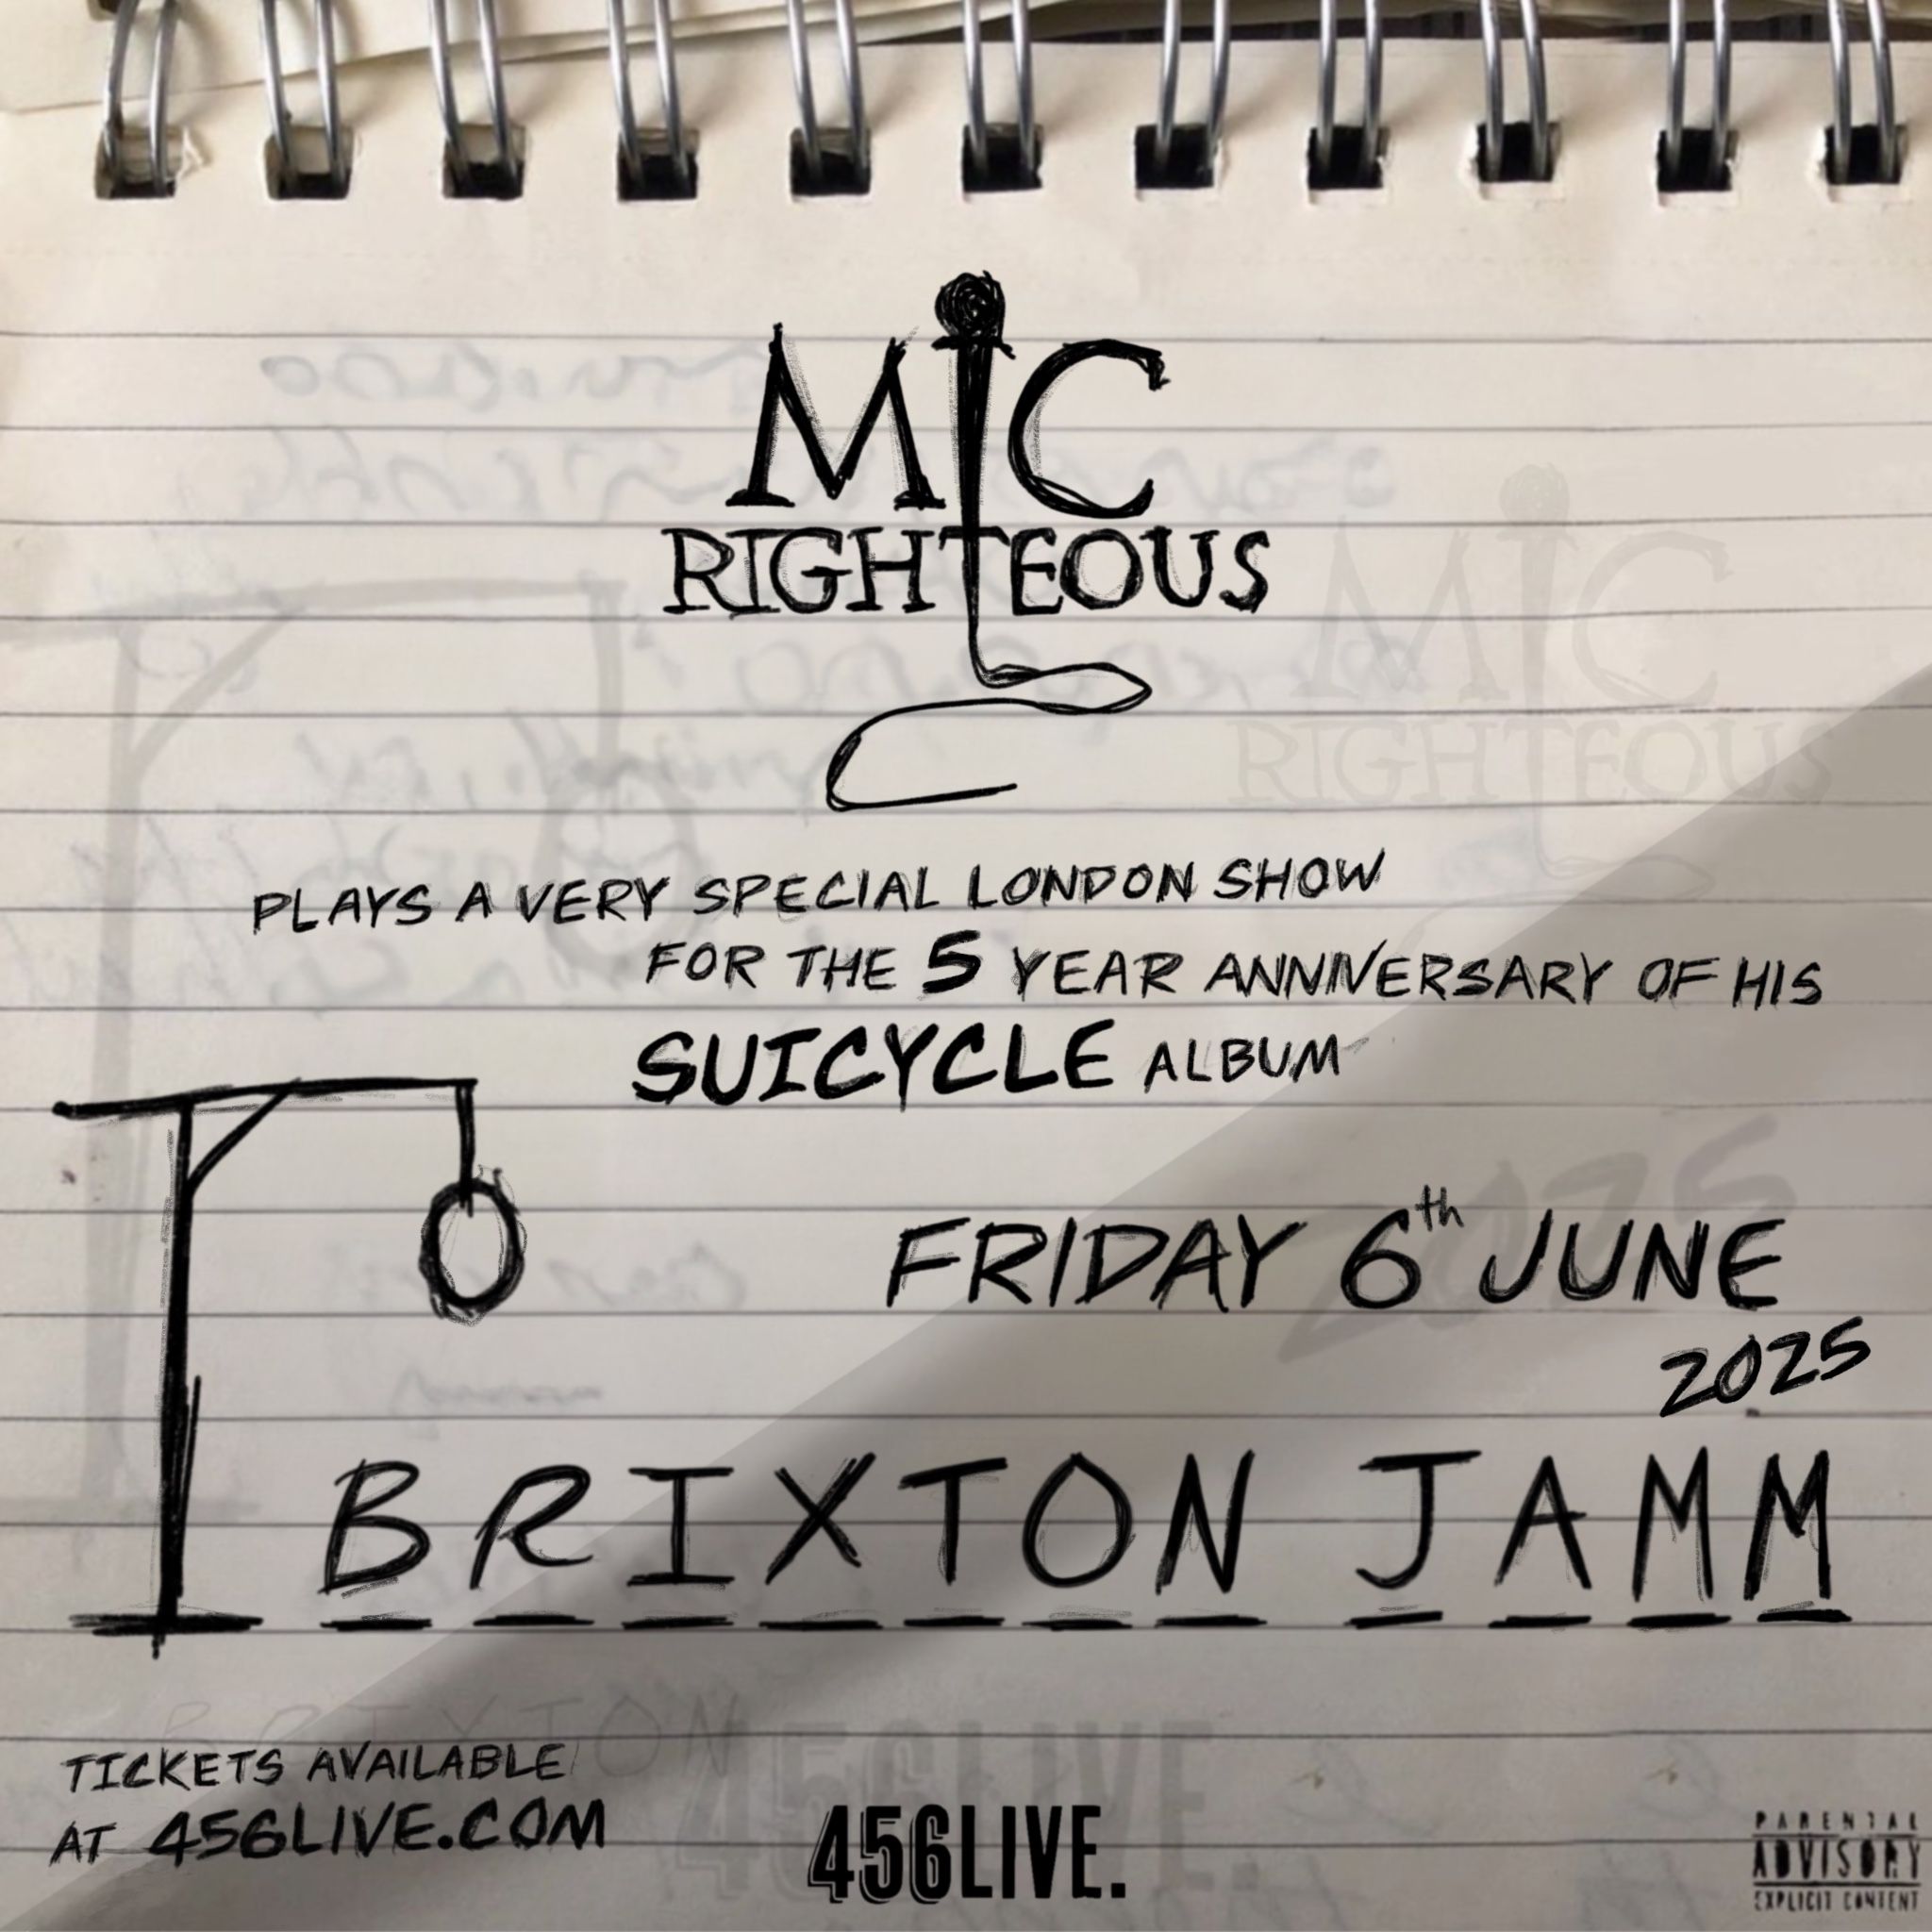 MIC
RIGHTEOUS
PLAYS A VERY SPECIAL LONDON SHOW
FOR THE 5 YEAR ANNIVERSARY OF HIS
SUICYCLE ALBUM
FRIDAY 6th JUNE
2025
BRIXTON JAMM
TICKETS AVAILABLE
AT 456LIVE.COM
456LIVE.
PARENTAL
ADVISORY
EXPLICIT CONTENT
MIC
RIGHTEOUS
2025
BRIXTON
456LIVE.